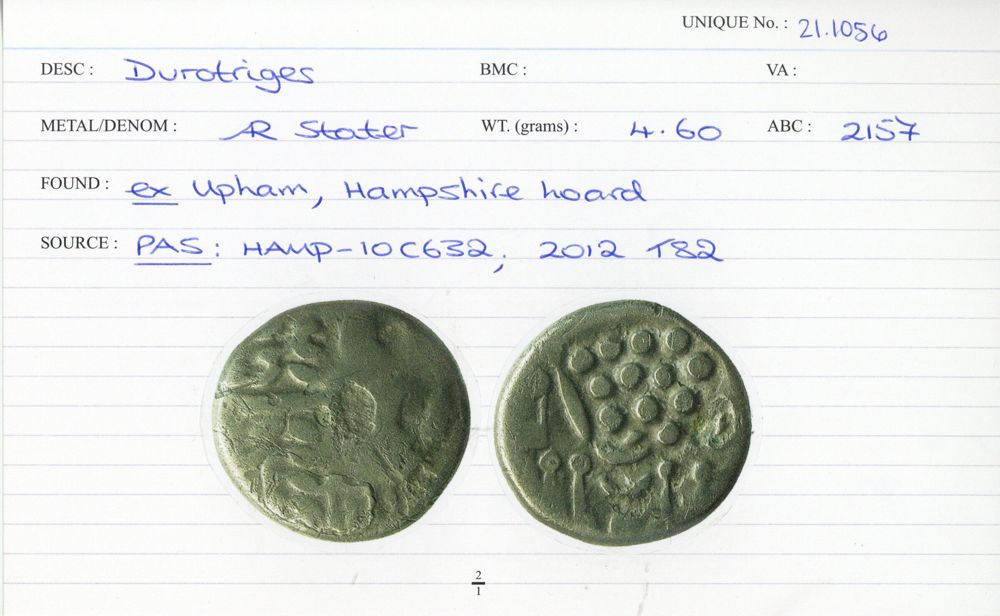 UNIQUE No. : 21.1056
DESC : Durotriges BMC : VA :
METAL/DENOM : AR Stater WT. (grams) : 4.60 ABC : 2157
FOUND : ex Upham, Hampshire hoard
SOURCE : PAS: HAMP-10C632, 2012 T82
2
1